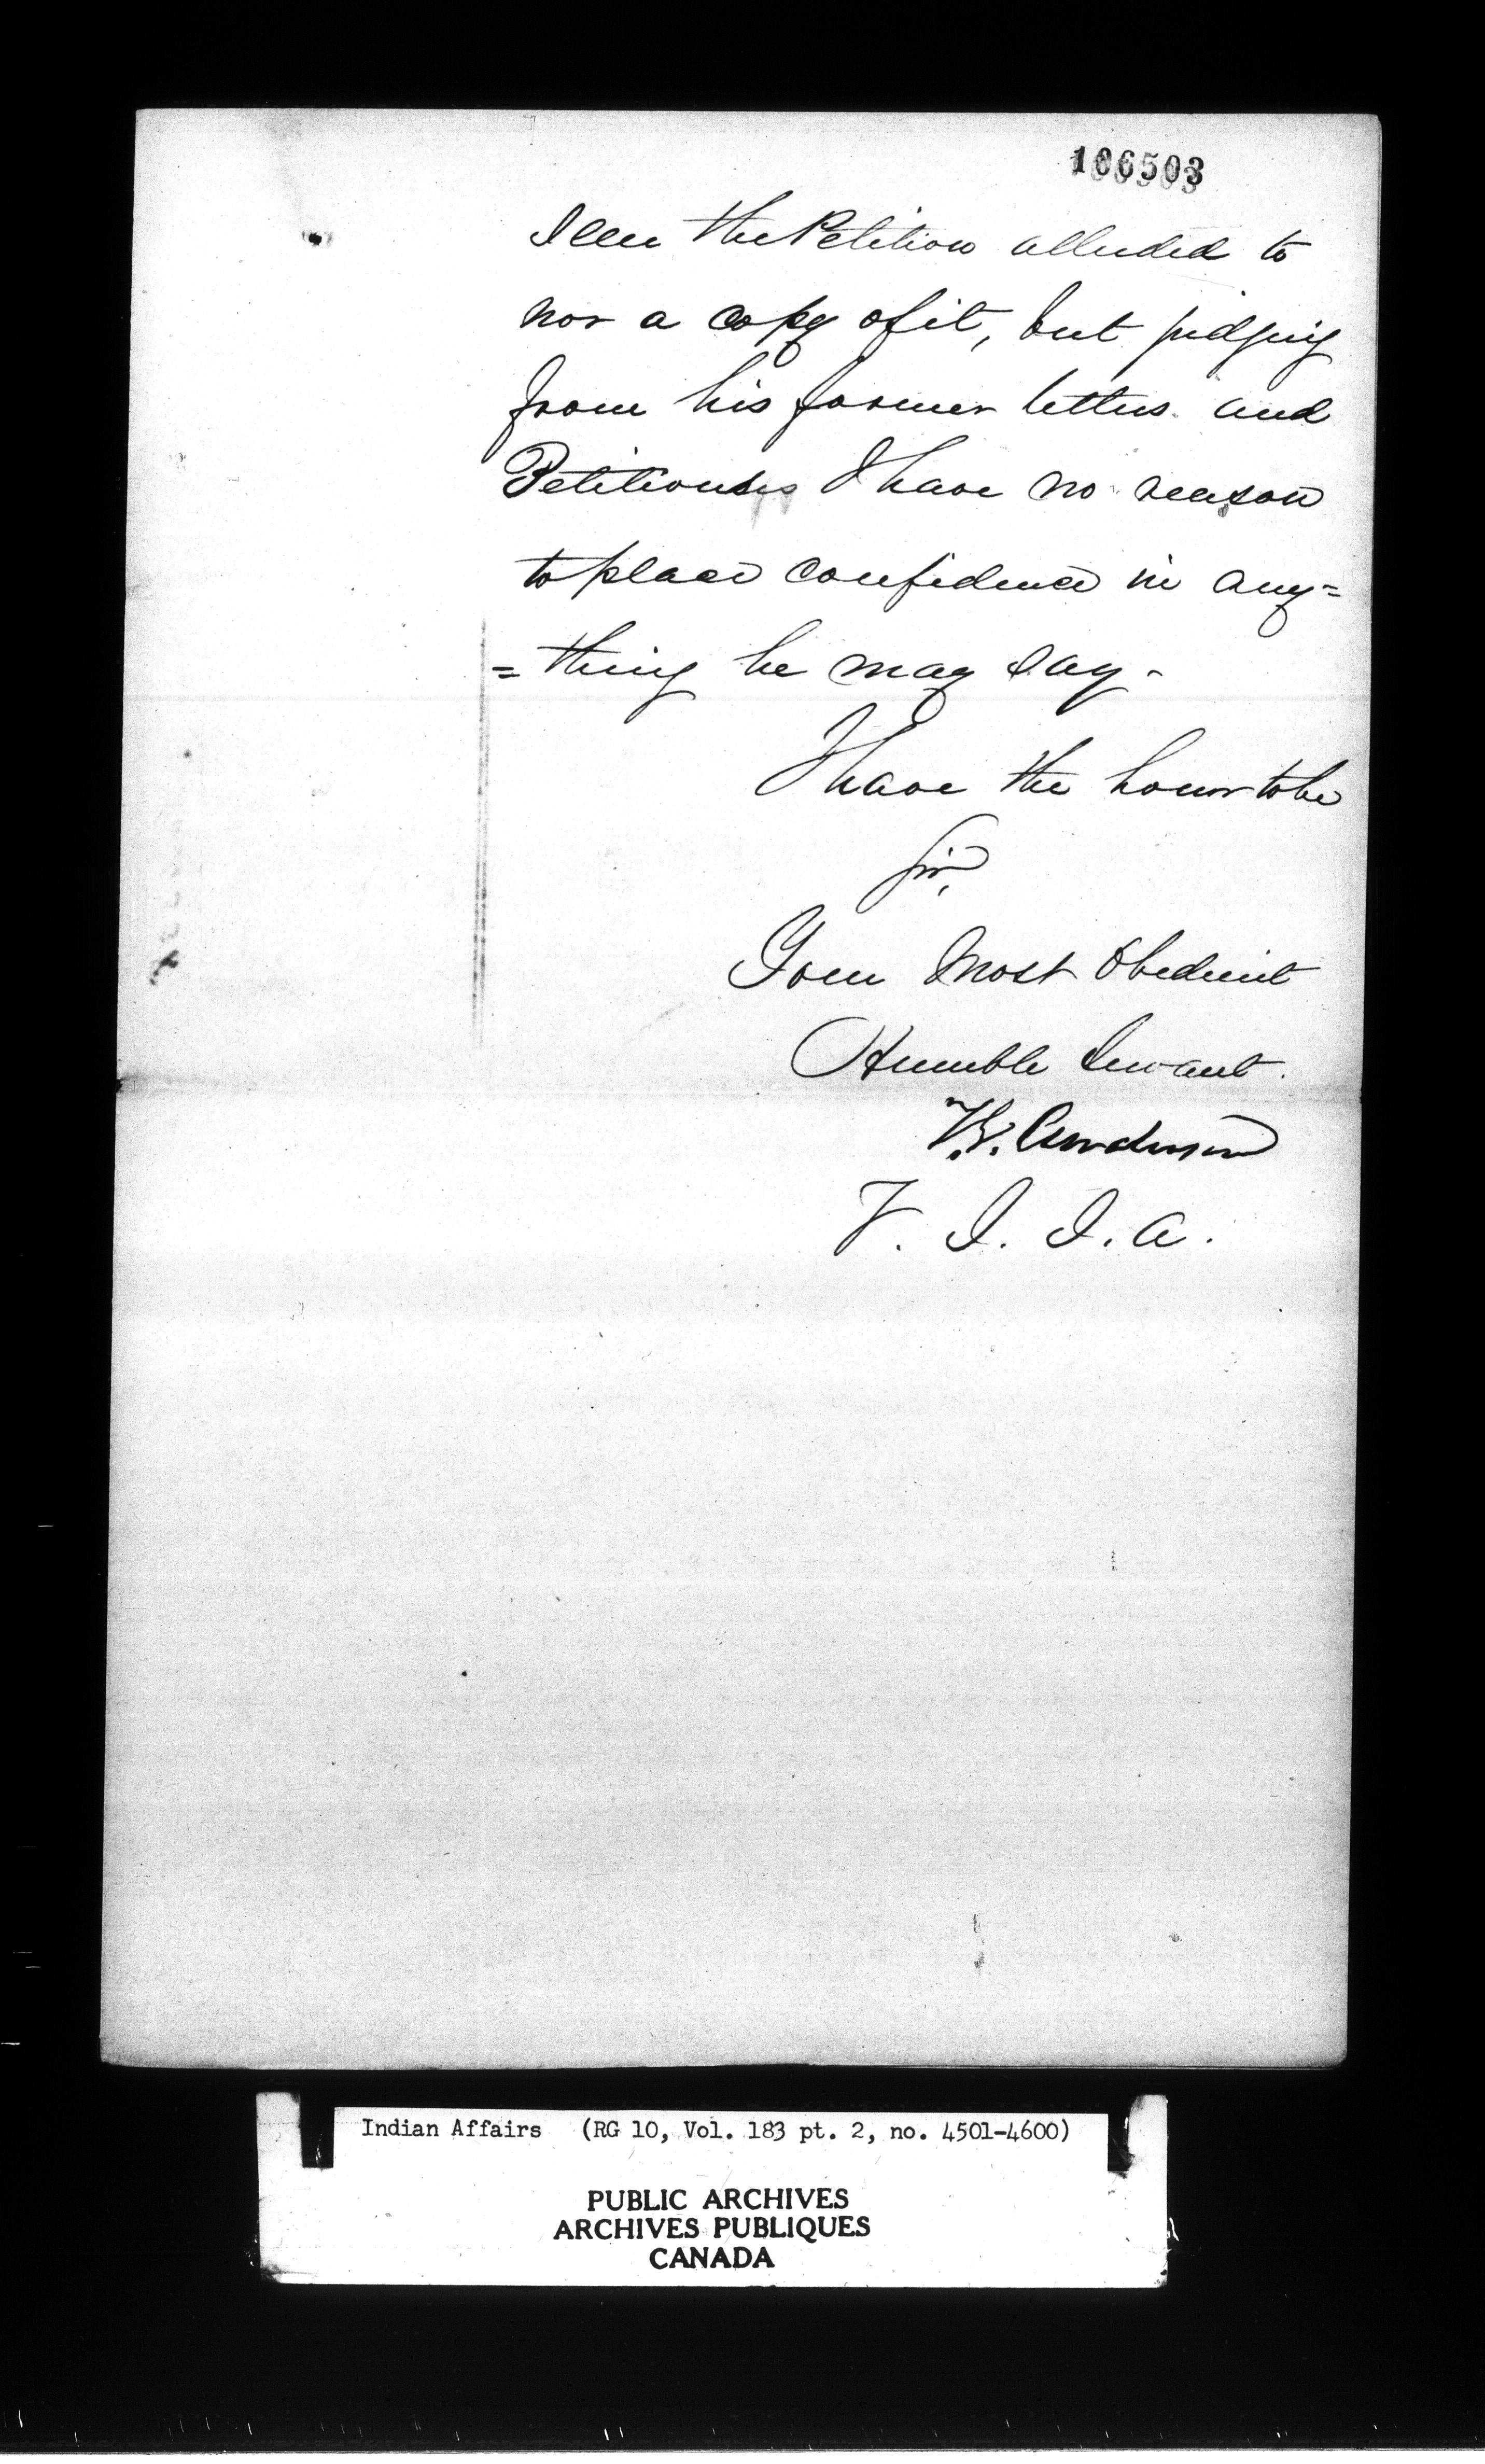 106503
seen the Petition alluded to
nor a copy of it, but judging
from his former letters and
Petitions I have no reason
to place confidence in any=
=thing he may say.
I have the honor to be
Sir,
Your Most Obedient
Humble Servant.
T.G. Anderson
V. S. I. A.
Indian Affairs (RG 10, Vol. 183 pt. 2, no. 4501-4600)
PUBLIC ARCHIVES
ARCHIVES PUBLIQUES
CANADA